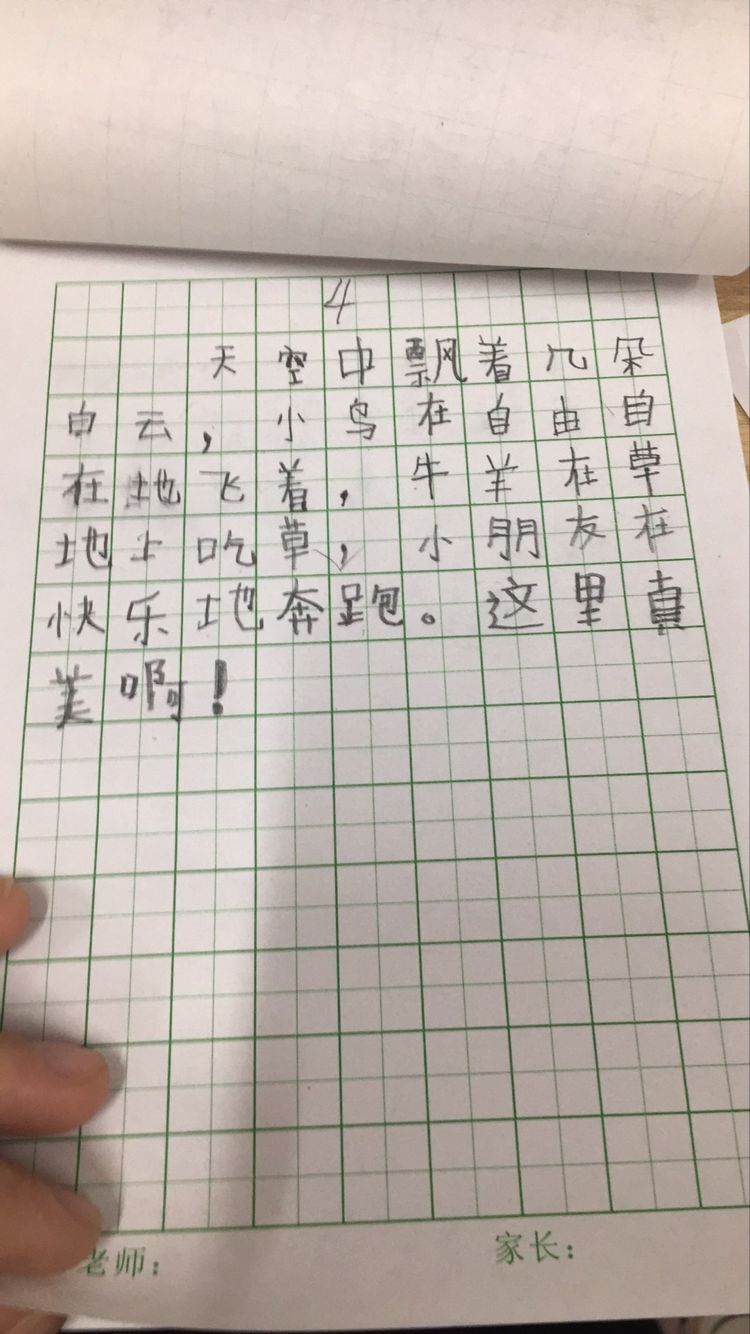 4
天空中飘着几朵
白云，小鸟在自由自
在地飞着，牛羊在草
地上吃草，小朋友在
快乐地奔跑。这里真
美啊！
老师： 家长：